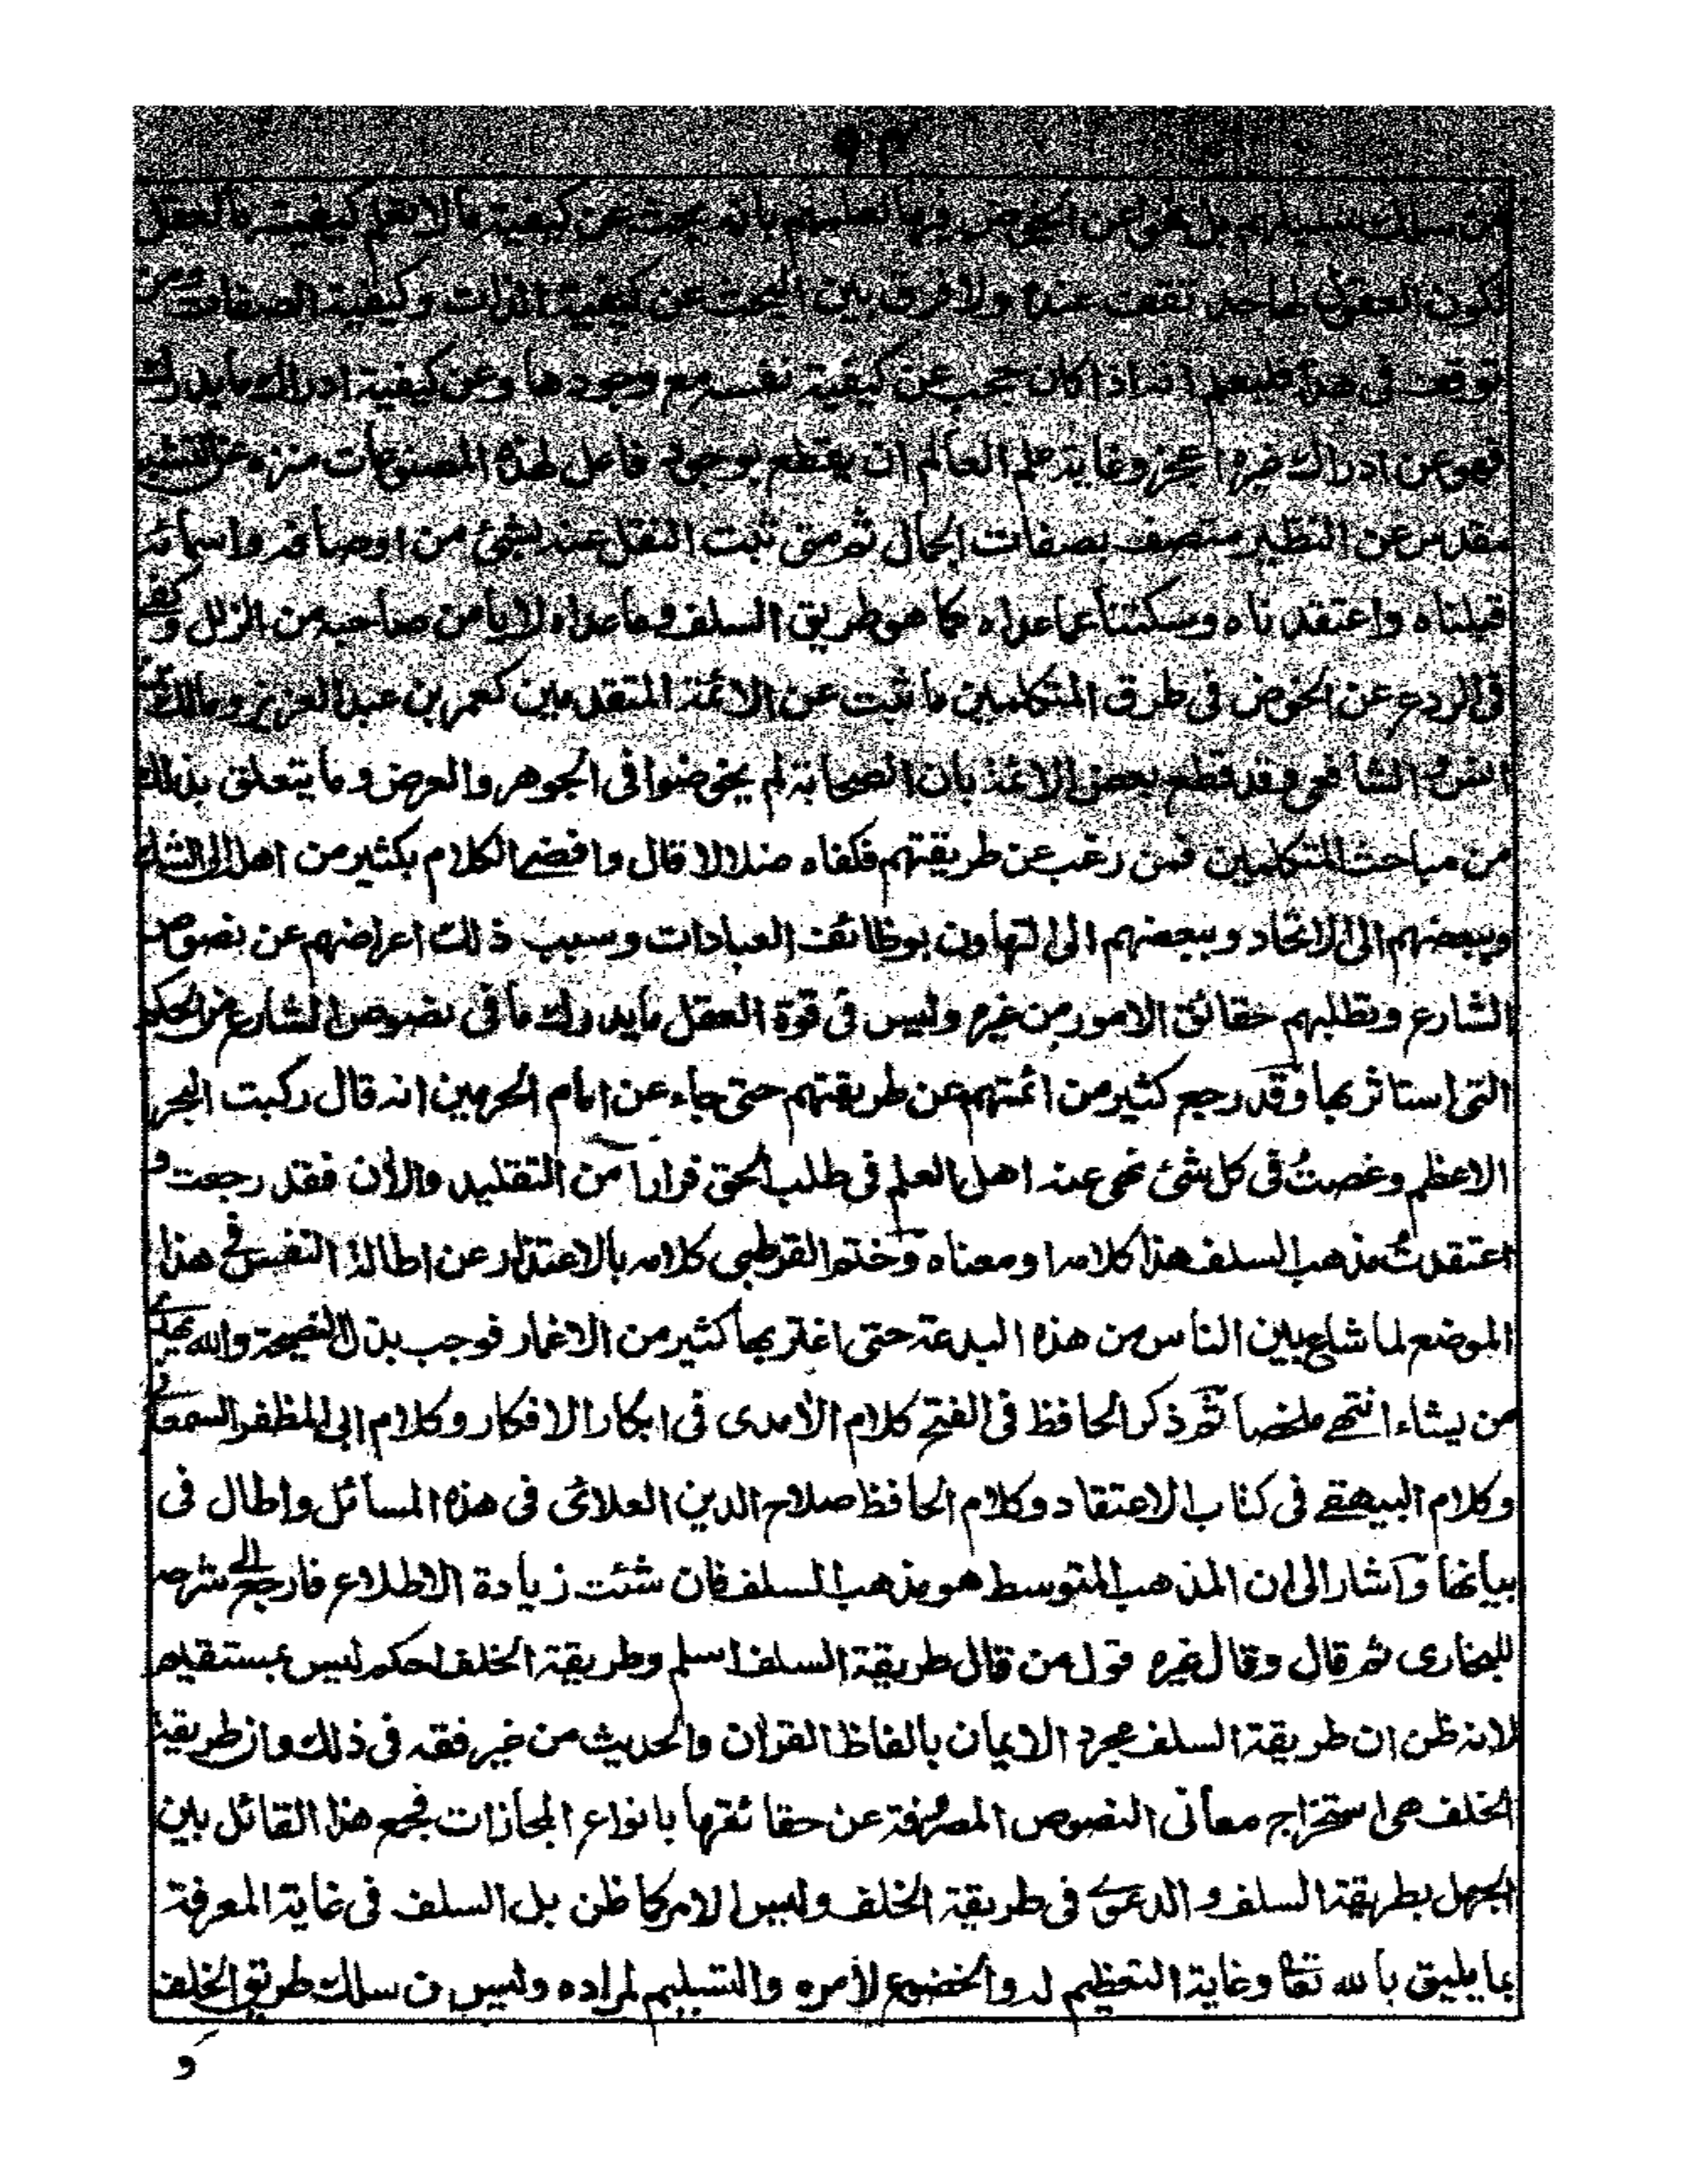 من سلك سبيلهم بل نهوا عن الخوض فيها لعلمهم بانه بحث عن كيفية مالا تعلم كيفيته بالعقل
لكون العقول لها حد تقف عنده ولا فرق بين البحث عن كيفية الذات وكيفية الصفات ومن
توقف في هذا فليعلم انه اذا كان حجب عن كيفية نفسه مع وجودها وعن كيفية ادراك ما يدرك
فهو عن ادراك غيره اعجز وغاية علم العالم ان يقطع بوجود فاعل لهذه المصنوعات منزه عن الشبيه
مقدس عن النظير متصف بصفات الجمال ثم متى ثبت النقل عنه بشئ من اوصافه واسمائه
قبلناه واعتقدناه وسكتنا عما عداه كما هو طريق السلف وما عداه لا يامن صاحبه من الزلل وكفى
فى الردع عن الخوض فى طرق المتكلمين ما ثبت عن الائمة المتقدمين كعمر بن عبد العزيز ومالك بن
انس والشافعى وقد قطع بعض الائمة بان الصحابة لم يخوضوا فى الجوهر والعرض وما يتعلق بذلك
من مباحث المتكلمين فمن رغب عن طريقتهم فكفاه ضلالا قال وافضى الكلام بكثير من اهله الى الشك
وببعضهم الى الالحاد وببعضهم الى التهاون بوظائف العبادات وسبب ذلك اعراضهم عن نصوص
الشارع وتطلبهم حقائق الامور من غيره وليس فى قوة العقل ما يدرك ما فى نصوص الشارع من الحكم
التى استاثر بها وقد رجع كثير من ائمتهم عن طريقتهم حتى جاء عن امام الحرمين انه قال ركبت البحر
الاعظم وغصتُ فى كل شئ نهى عنه اهل العلم فى طلب الحق فرارا من التقليد والأن فقد رجعت و
اعتقدتُ مذهب السلف هذا كلامه او معناه وختم القرطبى كلامه بالاعتذار عن اطالة النفس فى هذا
الموضع لما شاع بين الناس من هذه البدعة حتى اغتر بها كثير من الاغمار فوجب بذل النصيحة والله يهدى
من يشاء انتهى ملخصا ثم ذكر الحافظ فى الفتح كلام الأمدى فى ابكار الافكار وكلام ابى المظفر السمعانى
وكلام البيهقى فى كتاب الاعتقاد وكلام الحافظ صلاح الدين العلائى فى هذه المسائل واطال فى
بيانها واشار الى ان المذهب المتوسط هو مذهب السلف فان شئت زيادة الاطلاع فارجع الى شرحه
للبخارى ثم قال وقال غيره قول من قال طريقة السلف اسلم وطريقة الخلف احكم ليس بمستقيم
لانه ظن ان طريقة السلف مجرد الايمان بالفاظ القرأن والحديث من غير فقه فى ذلك وان طريقة
الخلف هى استخراج معانى النصوص المصروفة عن حقائقها بانواع المجازات فجمع هذا القائل بين
الجهل بطريقة السلف والدعوى فى طريقة الخلف وليس الامر كما ظن بل السلف فى غاية المعرفة
بما يليق بالله تعا وغاية التعظيم له والخضوع لأمره والتسليم لمراده وليس من سلك طريق الخلف
و